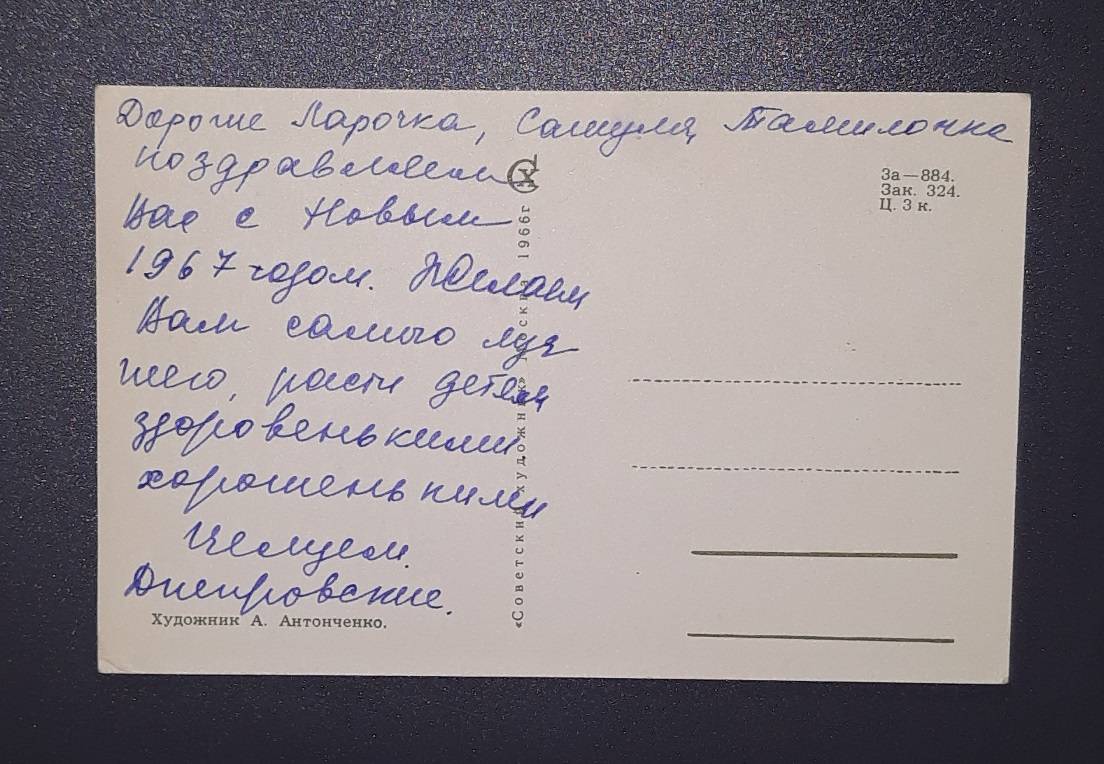 Дорогие Ларочка, Сашуля, Тамилочка
поздравляем
Вас с Новым
1967 годом. Желаем
Вам самого луч
шего, расти детям
здоровенькими
хорошенькими
Целуем.
Днепровские.
Художник А. Антонченко.
«Советский художник» Москва 1966г
СХ
За—884.
Зак. 324.
Ц. 3 к.